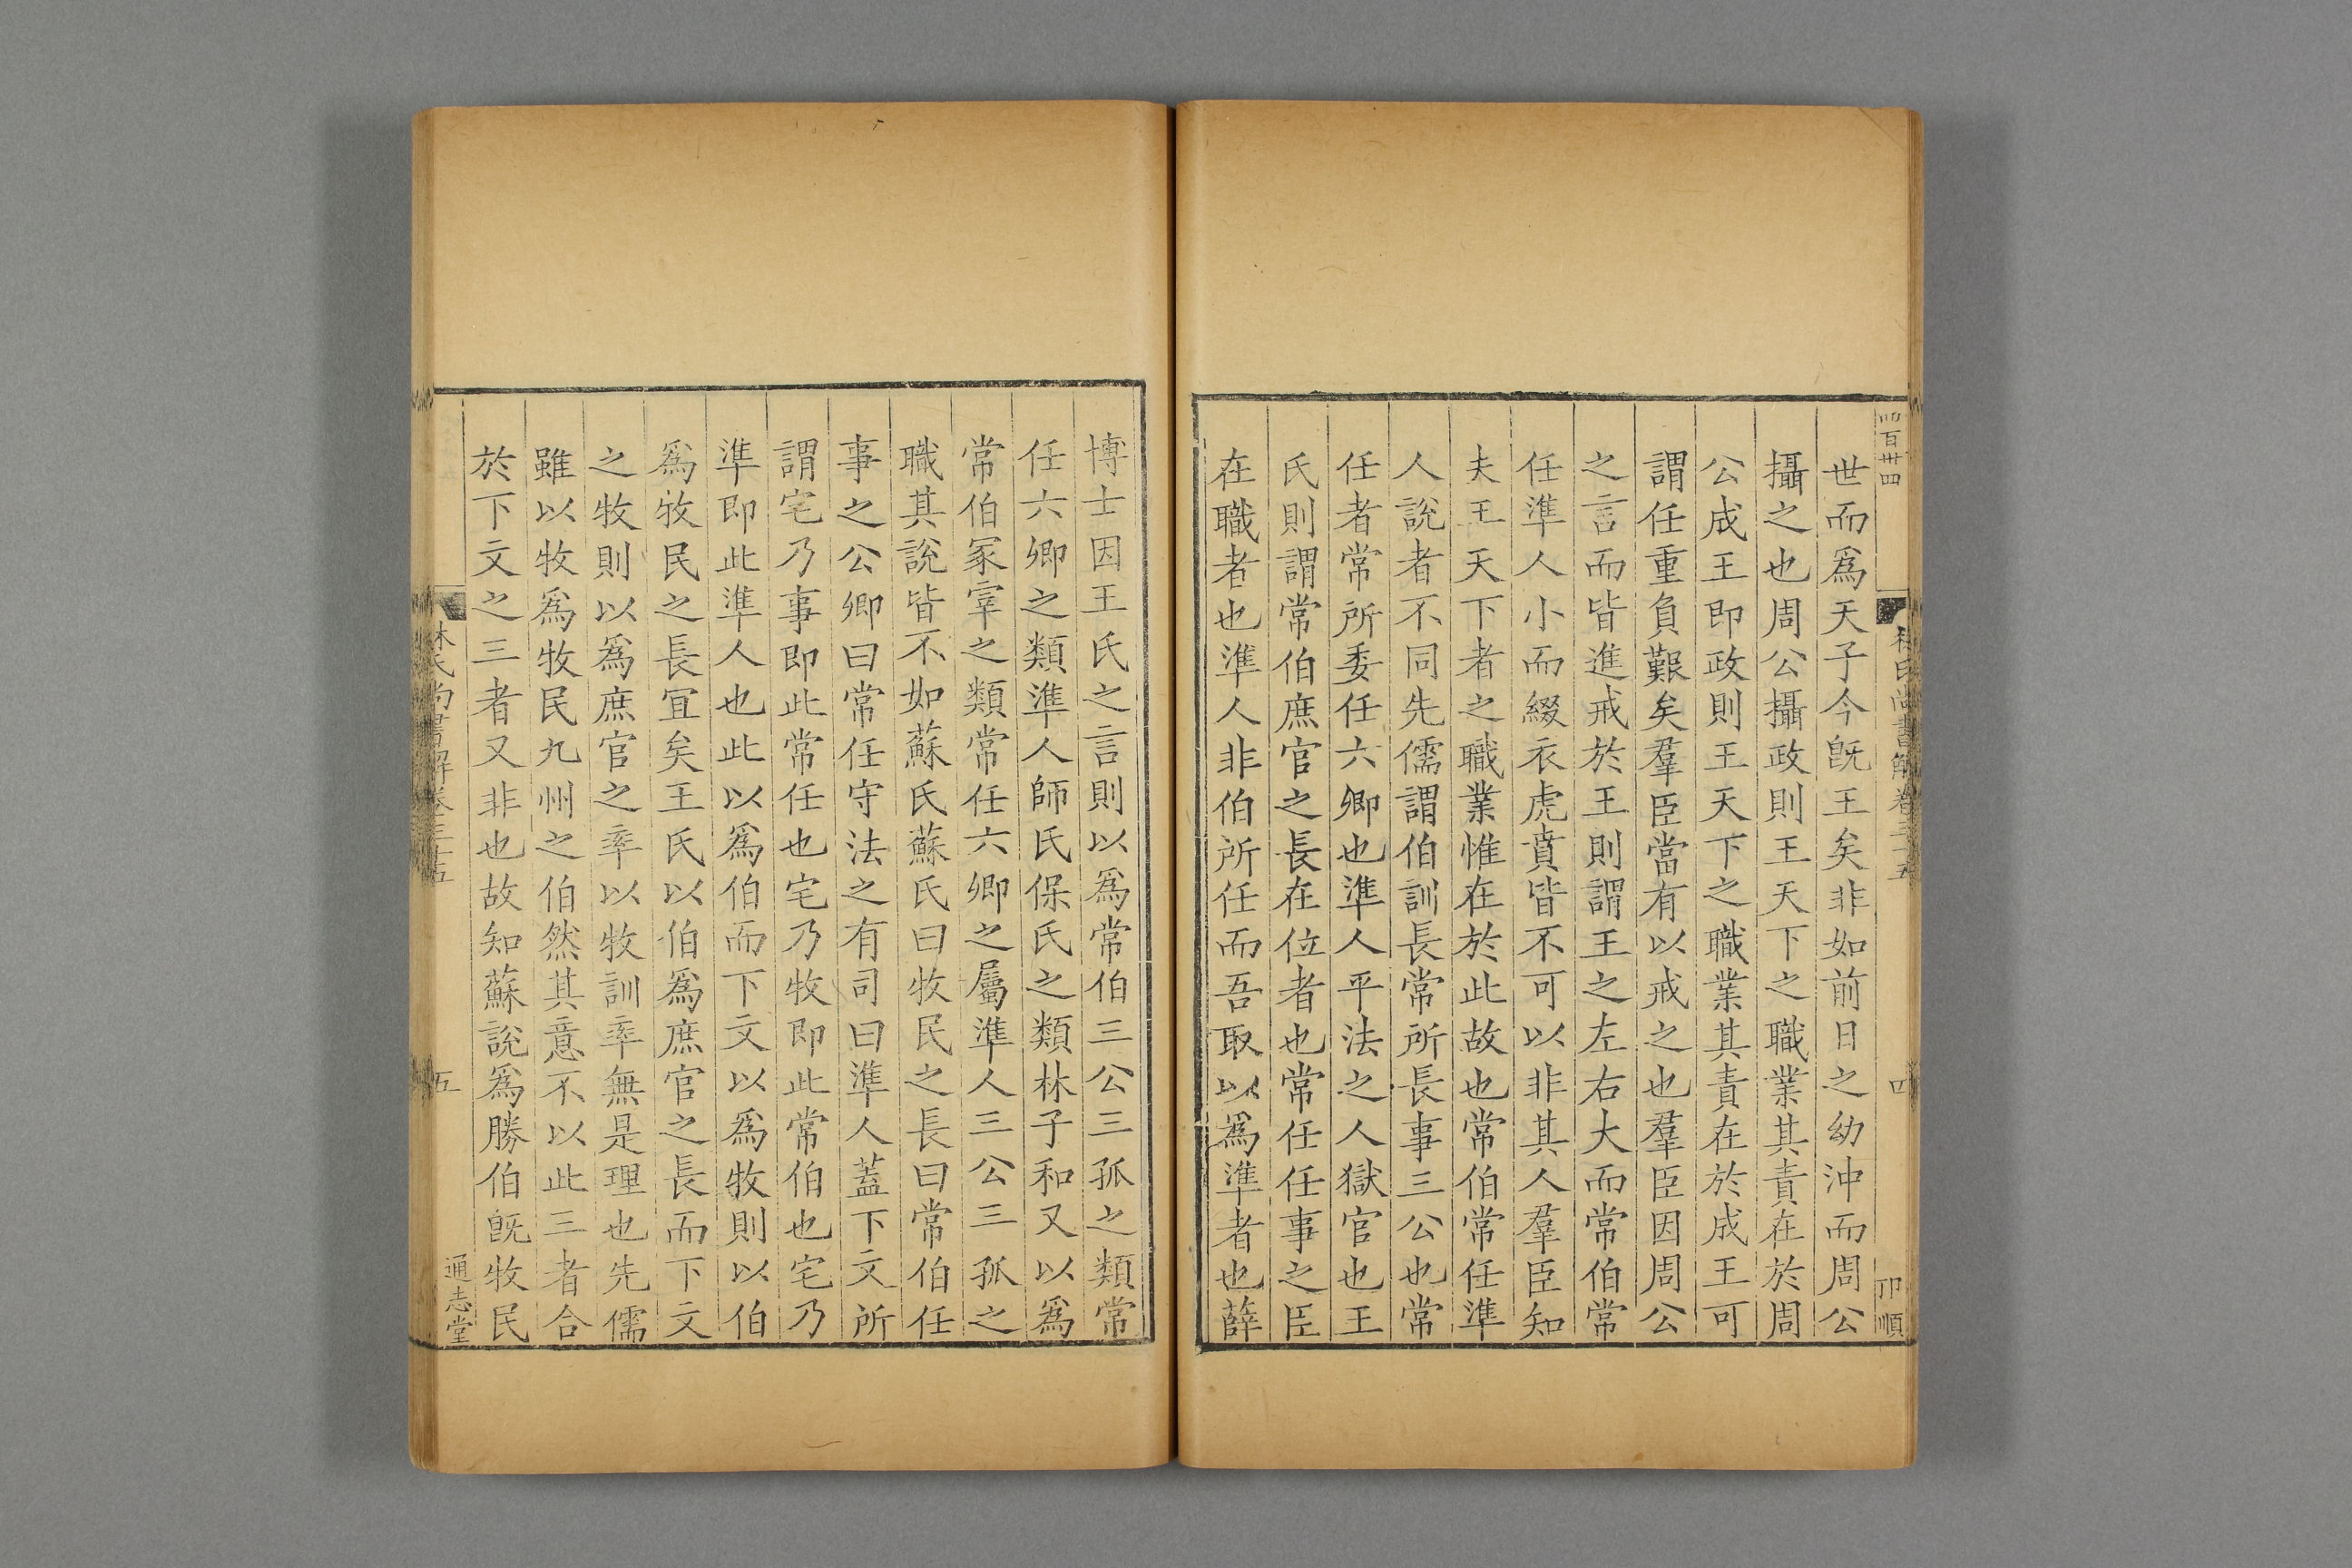 四百卄四
林氏尚書解卷三十五
四
卬順
世而爲天子今旣王矣非如前日之幼沖而周公
攝之也周公攝政則王天下之職業其責在於周
公成王即政則王天下之職業其責在於成王可
謂任重負艱矣羣臣當有以戒之也羣臣因周公
之言而皆進戒於王則謂王之左右大而常伯常
任準人小而綴衣虎賁皆不可以非其人羣臣知
夫王天下者之職業惟在於此故也常伯常任準
人說者不同先儒謂伯訓長常所長事三公也常
任者常所委任六卿也準人平法之人獄官也王
氏則謂常伯庶官之長在位者也常任任事之臣
在職者也準人非伯所任而吾取以爲準者也薛
博士因王氏之言則以爲常伯三公三孤之類常
任六卿之類準人師氏保氏之類林子和又以爲
常伯冢宰之類常任六卿之屬準人三公三孤之
職其說皆不如蘇氏蘇氏曰牧民之長曰常伯任
事之公卿曰常任守法之有司曰準人蓋下文所
謂宅乃事即此常任也宅乃牧即此常伯也宅乃
準即此準人也此以爲伯而下文以爲牧則以伯
爲牧民之長宜矣王氏以伯爲庶官之長而下文
之牧則以爲庶官之率以牧訓率無是理也先儒
雖以牧爲牧民九州之伯然其意不以此三者合
於下文之三者又非也故知蘇說爲勝伯旣牧民
林氏尚書解卷三十五
五
通志堂